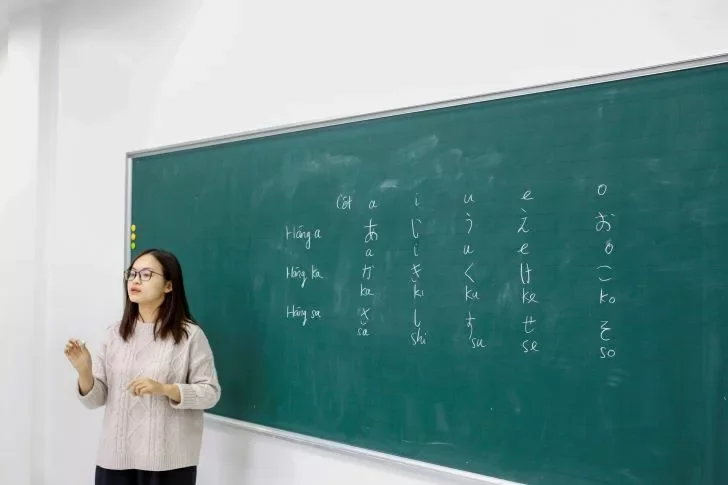 Cột a i u e o
Hàng a あ い う え お
a i u e o
Hàng ka か き く け こ
ka ki ku ke ko
Hàng sa さ し す せ そ
sa shi su se so